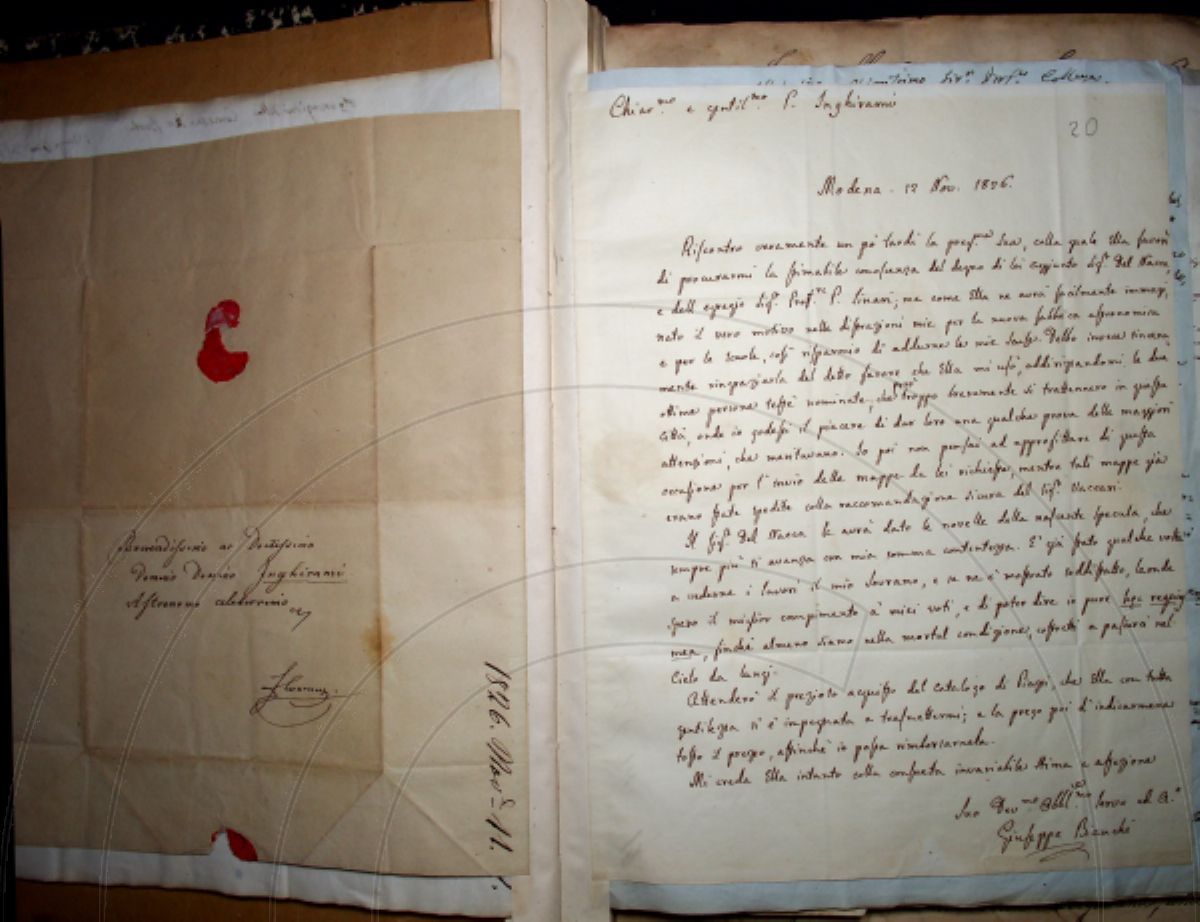 Reverendissimo ac Doctissimo
Domino Domino Inghirami
Astronomo celeberrimo
Florence
1826. Nov. 11.
Sig.r Prof.re
Chiar.mo e gentil.mo P. Inghirami
20
Modena 12 Nov. 1826.
Riscontro veramente un pò tardi la preg.ma Sua, colla quale Ella favorì
di procurarmi la stimabile conoscenza del degno di lei aggiunto Sig.r Del Nacca,
e dell'egregio Sig.r Prof.re P. Linari; ma come Ella ne avrà facilmente immagi,
nato il vero motivo nelle distrazioni mie per la nuova fabbrica astronomica
e per le scuole, così risparmio di addurne le mie scuse. Debbo invece sincera,
mente ringraziarla del detto favore che Ella mi usò, addirizzandomi le due
ottime persone testè nominate, che però troppo brevemente si trattennero in questa
Città, onde io godessi il piacere di dar loro una qualche prova delle maggiori
attenzioni, che meritavano. Io poi non pensai ad approfittare di questa
occasione per l'invio delle mappe da lei richieste, mentre tali mappe già
erano state spedite colla raccomandazione sicura del Sig.r Vaccari.
Il Sig.r Del Nacca le avrà dato le novelle della nascente specula, che
sempre più si avanza con mia somma contentezza. E' già stato qualche volta
a vederne i lavori il mio Sovrano, e se ne è mostrato soddisfatto, laonde
spero il miglior compimento a' miei voti, e di poter dire io pure hęc requies
mea, finchè almeno siamo nella mortal condizione, costretti a pascerci nel
Cielo da lungi.
Attenderò il prezioso acquisto del Catalogo di Piazzi, che Ella con tutta
gentilezza si è impegnata a trasmettermi; e la prego poi d'indicarmene
tosto il prezzo, affinchè io possa rimborsarnela.
Mi creda Ella intanto colla consueta invariabile stima e affezione
Suo Dev.mo Obbl.mo Servo ed A.o
Giuseppe Bianchi